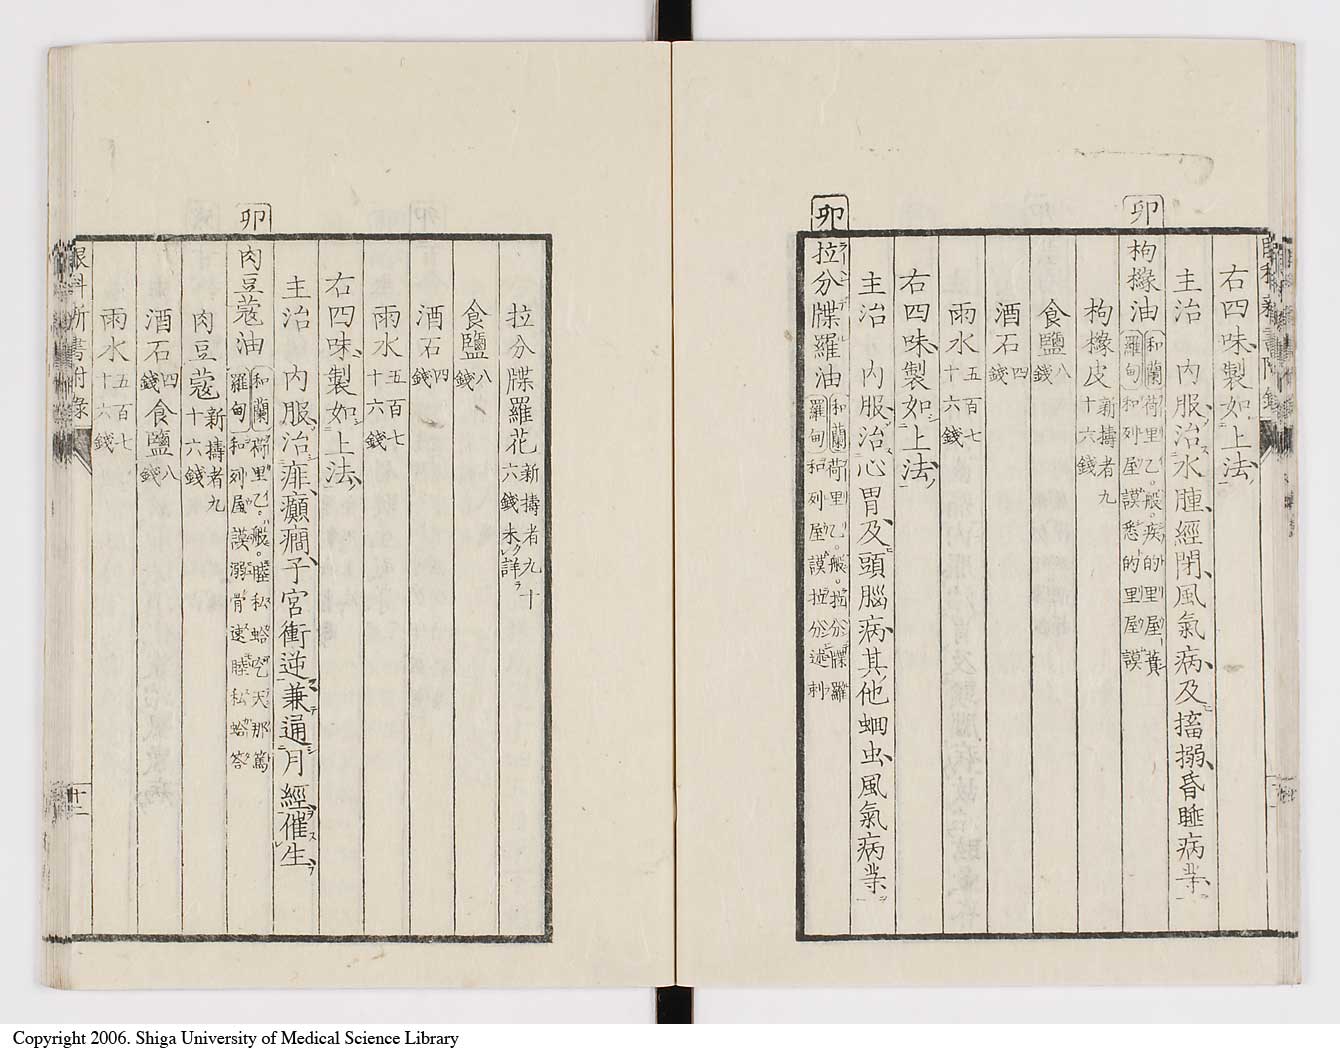 右四味製如上法
主治 内服治水腫經閉風氣病及搐搦昏睡病等
卯
枸櫞油
和蘭 荷里乙般疾的里屋蕢
羅甸 和列屋謨悉的里屋謨
枸櫞皮 新擣者九十六錢
食鹽 八錢
酒石 四錢
雨水 五百七十六錢
右四味製如上法
主治 内服治心胃及頭腦病其他蛔虫風氣病等
卯
拉分牒羅油
和蘭 荷里乙般拉分牒羅
羅甸 和列屋謨拉分述刺
拉分牒羅花 新擣者九十六錢未詳
食鹽 八錢
酒石 四錢
雨水 五百七十六錢
右四味製如上法
主治 内服治痱癲癇子宮衝逆兼通月經催生
卯
肉豆蔻油
和蘭 荷里乙般
羅甸 和列屋謨
肉豆蔻 新擣者九十六錢
酒石 四錢 食鹽 八錢
雨水 五百七十六錢
十二
Copyright 2006. Shiga University of Medical Science Library